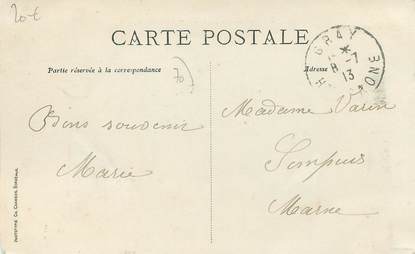 20 €
CARTE POSTALE
Partie réservée à la correspondance
Adresse
70
GRAY
8-7
13
Bons souvenir
Marie
Madame Varin
Sompuis
Marne